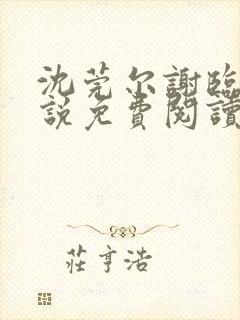 沈莞尔謝臨
說免費閱讀
莊亨浩